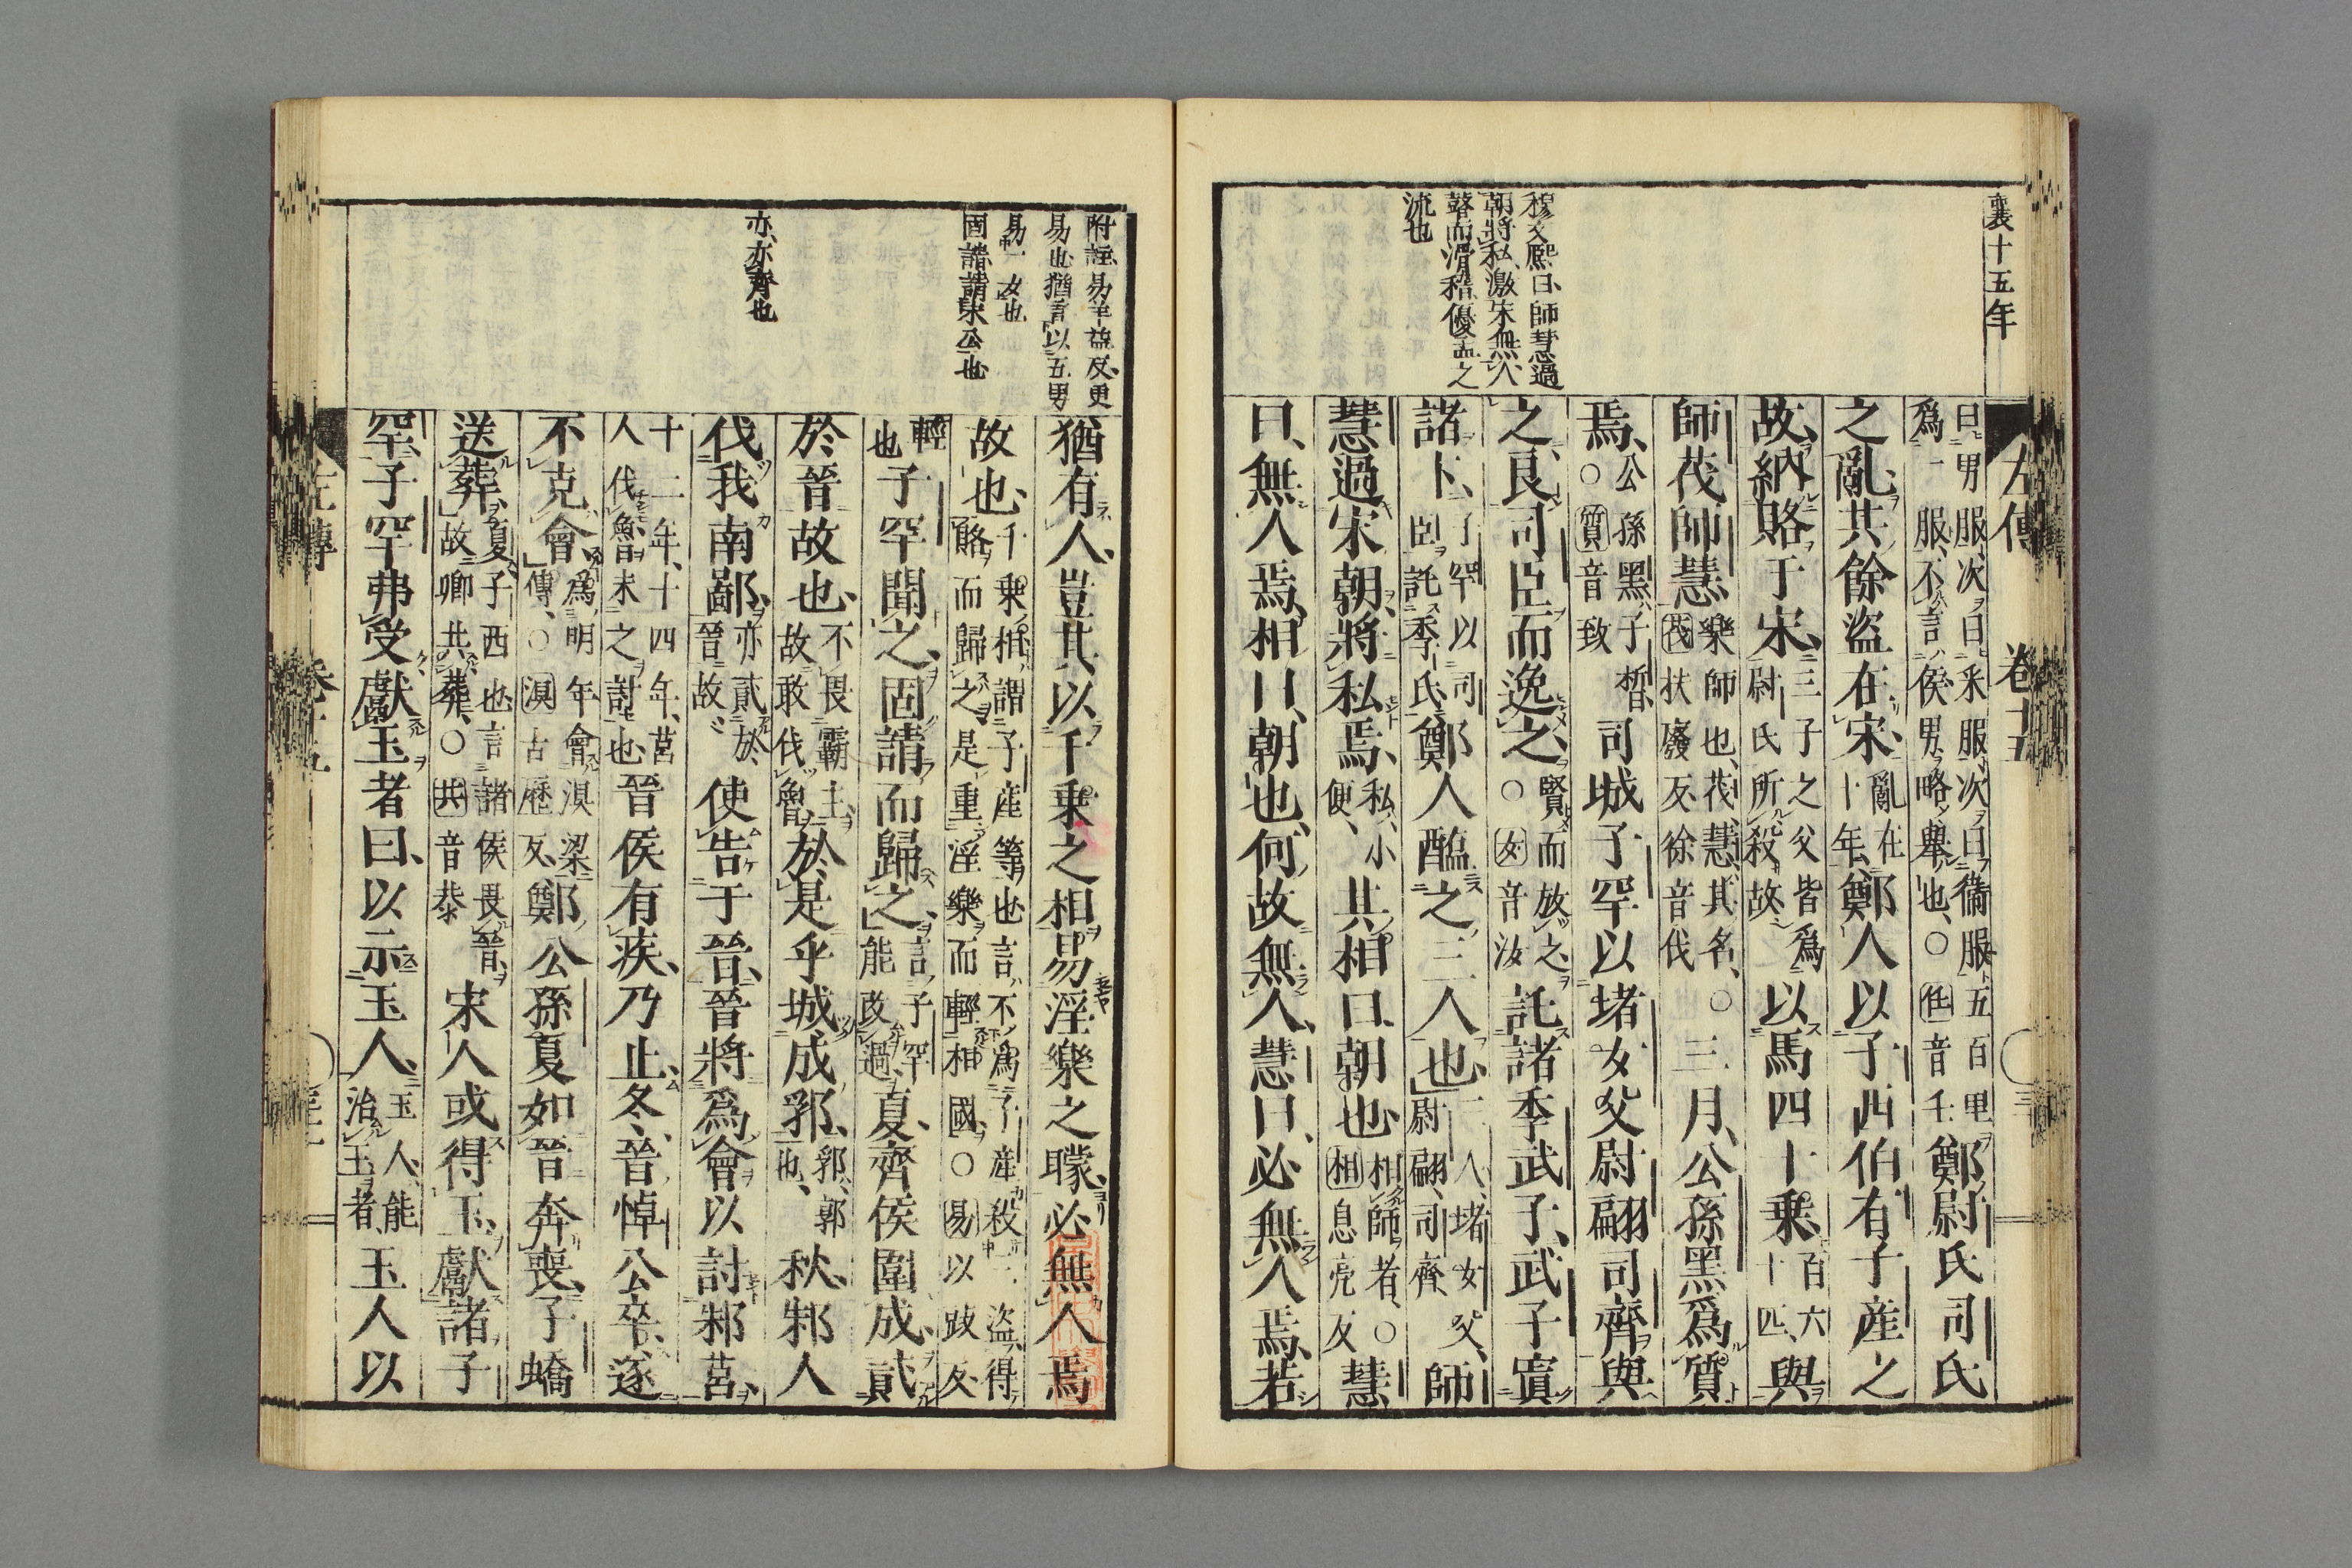 襄十五年
穆文熙曰師慧過
朝將私激宋無人
瞽而滑稽優孟之
流也
左傳 卷十五
曰男服次曰采服次曰衞服五百里
爲一服不言侯男略舉也○任音壬
鄭尉氏司氏
之亂其餘盜在宋
亂在
十年
鄭人以子西伯有子產之
故納賂于宋
三子之父皆爲
尉氏所殺故
以馬四十乘
百六
十匹
與
師茷師慧
樂師也茷慧其名○
茷扶廢反徐音伐
三月公孫黑爲質
焉
公孫黑子皙
○質音致
司城子罕以堵女父尉翩司齊與
之良司臣而逸之
賢而放之
○女音汝
託諸季武子武子寘
諸卞
子罕以司
臣託季氏
鄭人醢之三人也
三人堵女父
尉翩司齊
師
慧過宋朝將私焉
私小
便
其相曰朝也
相師者○
相息亮反
慧
曰無人焉相曰朝也何故無人慧曰必無人焉若
附註易羊益反更
易也猶言以五男
易一女也
固請請宋公也
亦亦齊也
猶有人豈其以千乘之相易淫樂之矇必無人焉
故也
千乘相謂子產等也言不爲子產殺三盜得
賂而歸之是重淫樂而輕相國○易以豉反
輕
也
子罕聞之固請而歸之
言子罕
能改過
夏齊侯圍成貳
於晉故也
不畏霸主
故敢伐魯
於是乎城成郛
郛郭
也
秋邾人
伐我南鄙
亦貳於
晉故
使告于晉晉將爲會以討邾莒
十二年十四年莒
人伐魯未之討也
晉侯有疾乃止冬晉悼公卒遂
不克會
爲明年會溴梁
傳○溴古歷反
鄭公孫夏如晉奔喪子蟜
送葬
夏子西也言諸侯畏晉
故卿共葬○共音恭
宋人或得玉獻諸子
罕子罕弗受獻玉者曰以示玉人
玉人能
治玉者
玉人以